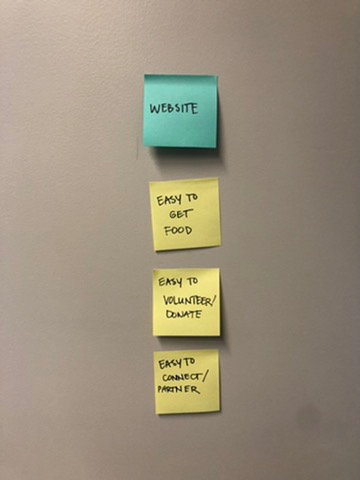 WEBSITE
EASY TO
GET
FOOD
EASY TO
VOLUNTEER/
DONATE
EASY TO
CONNECT/
PARTNER